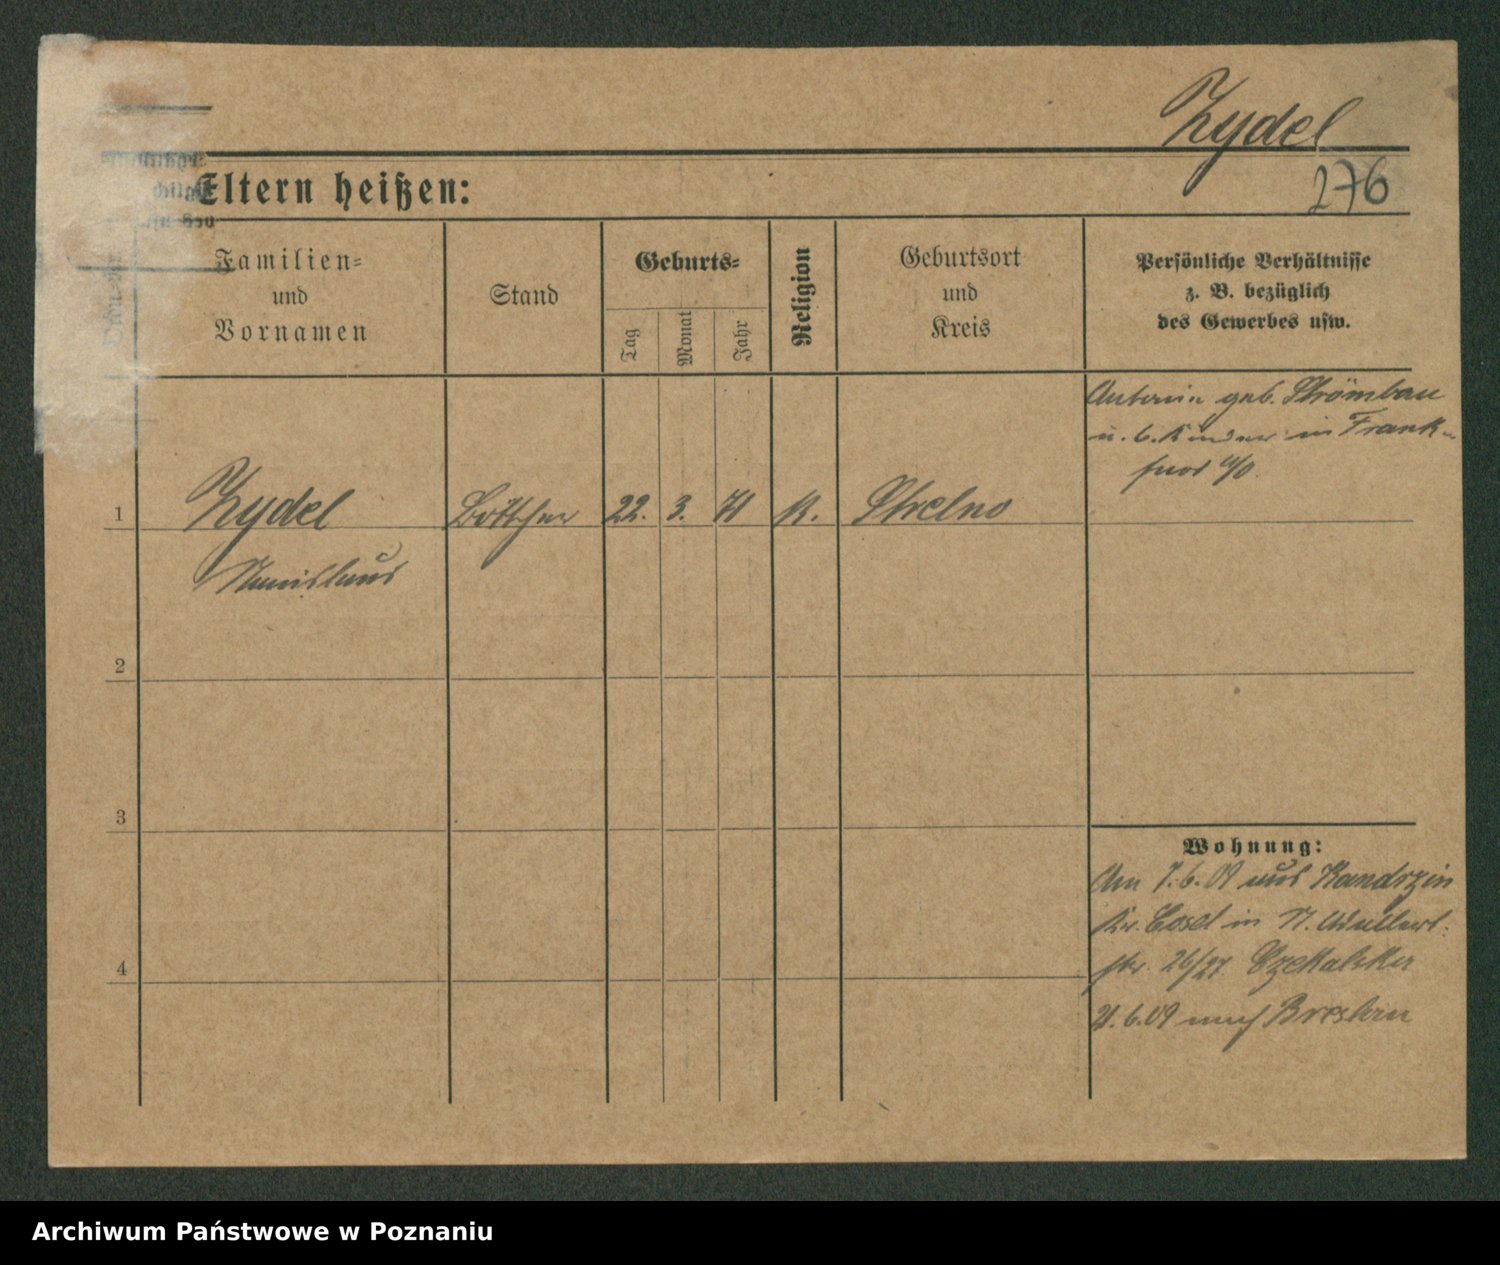 Zydel
276
Eltern heißen:
Familien=
und
Vornamen
Stand
Geburts=
Tag
Monat
Jahr
Religion
Geburtsort
und
Kreis
Persönliche Verhältnisse
z. B. bezüglich
des Gewerbes usw.
geb.
u. 6. Kinder in Frank-
furt a/O.
1
Zydel
Böttcher
22.
3.
71
K.
Strelno
2
3
4
Wohnung:
Am 7.6.09 aus Kandrzin
Kr. Cosel in St.
str. 26/27
21.6.09 nach Breslau
Archiwum Państwowe w Poznaniu